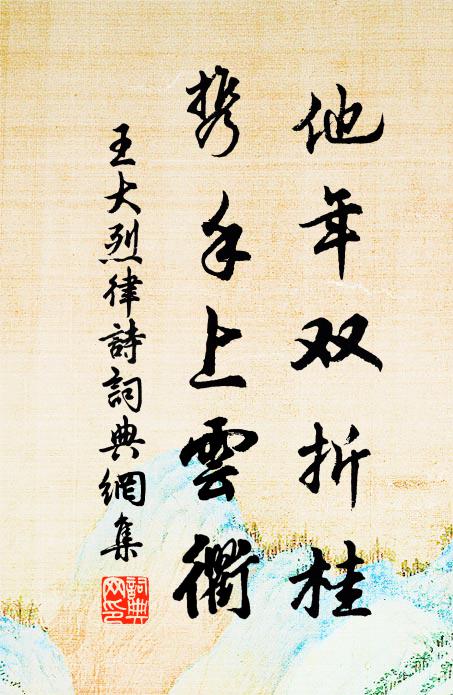 他年双折桂
携手上雲衢
王大烈律詩詞典網集
詞典网印